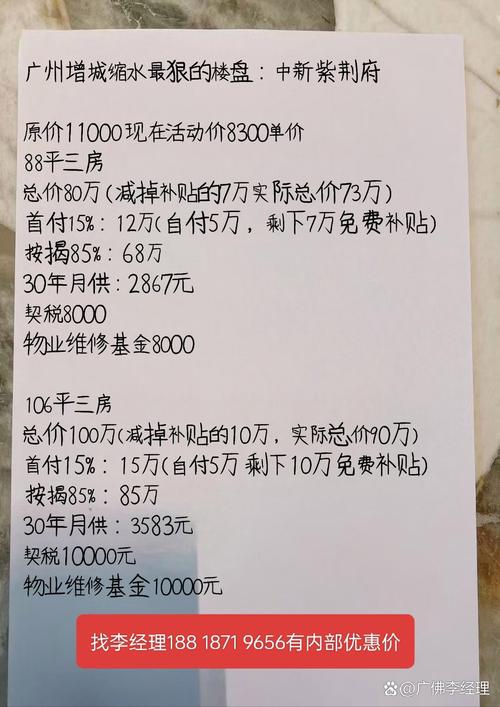 广州增城缩水最狠的楼盘：中新紫荆府
原价11000现在活动价8300单价
88平三房
总价80万(减掉补贴的7万实际总价73万)
首付15%：12万(自付5万，剩下7万免费补贴)
按揭85%：68万
30年月供：2867元
契税8000
物业维修基金8000
106平三房
总价100万(减掉补贴的10万，实际总价90万)
首付15%：15万(自付5万 剩下10万免费补贴)
按揭85%：85万
30年月供：3583元
契税10000元
物业维修基金10000元
找李经理188 1871 9656有内部优惠价
@广佛李经理